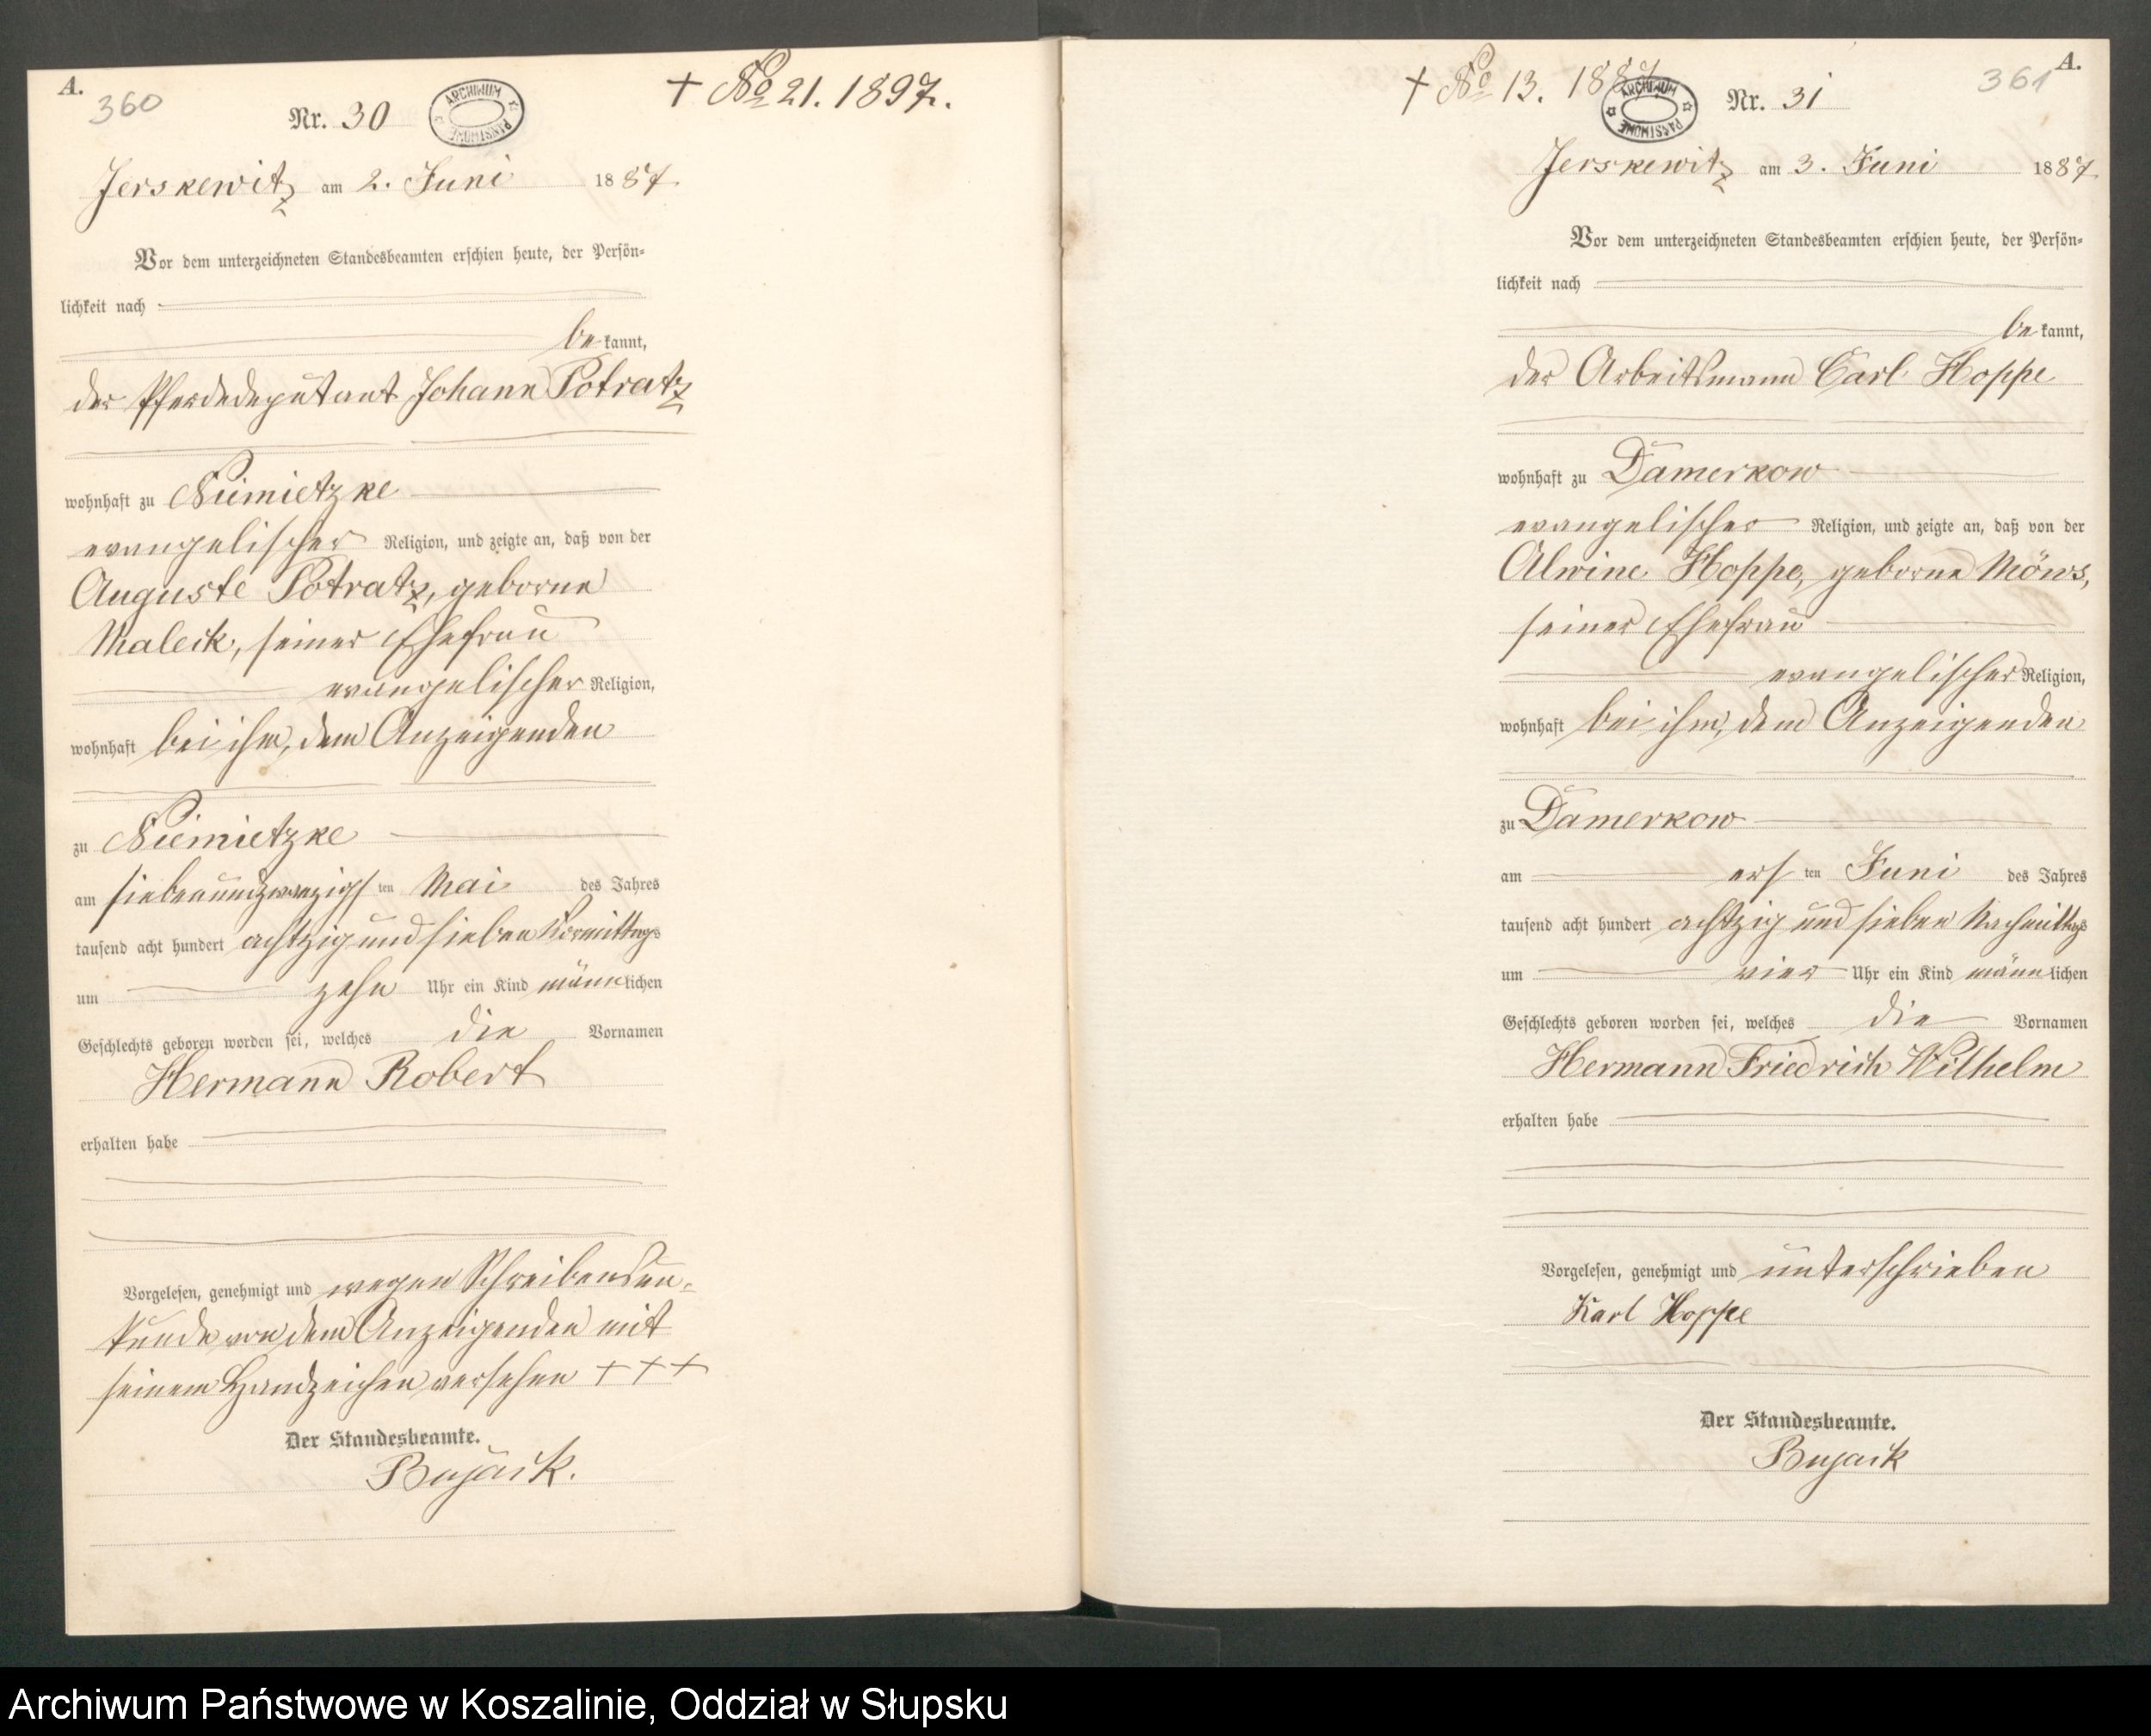 A.
360
Nr. 30
ARCHIWUM PAŃSTWOWE
+ No 21. 1897.
Jerskewitz am 2. Juni 1887.
Vor dem unterzeichneten Standesbeamten erschien heute, der Persön-
lichkeit nach
be kannt,
der Pferdedeputant Johann Potratz
wohnhaft zu Niemietzke
evangelischer Religion, und zeigte an, daß von der
Auguste Potratz, geborne
Maleck, seiner Ehefrau
evangelischer Religion,
wohnhaft bei ihm, dem Anzeigenden
zu Niemietzke
am siebenundzwanzigs ten Mai des Jahres
tausend acht hundert achtzig und sieben Vormittags
um zehn Uhr ein Kind männ lichen
Geschlechts geboren worden sei, welches die Vornamen
Hermann Robert
erhalten habe
Vorgelesen, genehmigt und wegen Schreibensun-
kunde von dem Anzeigenden mit
seinem Handzeichen versehen + + +
Der Standesbeamte.
Bujack.
+ No 13. 1887
ARCHIWUM PAŃSTWOWE
Nr. 31
361
A.
Jerskewitz am 3. Juni 1887.
Vor dem unterzeichneten Standesbeamten erschien heute, der Persön-
lichkeit nach
be kannt,
der Arbeitsmann Carl Hoppe
wohnhaft zu Damerkow
evangelischer Religion, und zeigte an, daß von der
Alwine Hoppe, geborne Möws,
seiner Ehefrau
evangelischer Religion,
wohnhaft bei ihm, dem Anzeigenden
zu Damerkow
am ers ten Juni des Jahres
tausend acht hundert achtzig und sieben Nachmittags
um vier Uhr ein Kind männ lichen
Geschlechts geboren worden sei, welches die Vornamen
Hermann Friedrich Wilhelm
erhalten habe
Vorgelesen, genehmigt und unterschrieben
Karl Hoppe
Der Standesbeamte.
Bujack
Archiwum Państwowe w Koszalinie, Oddział w Słupsku